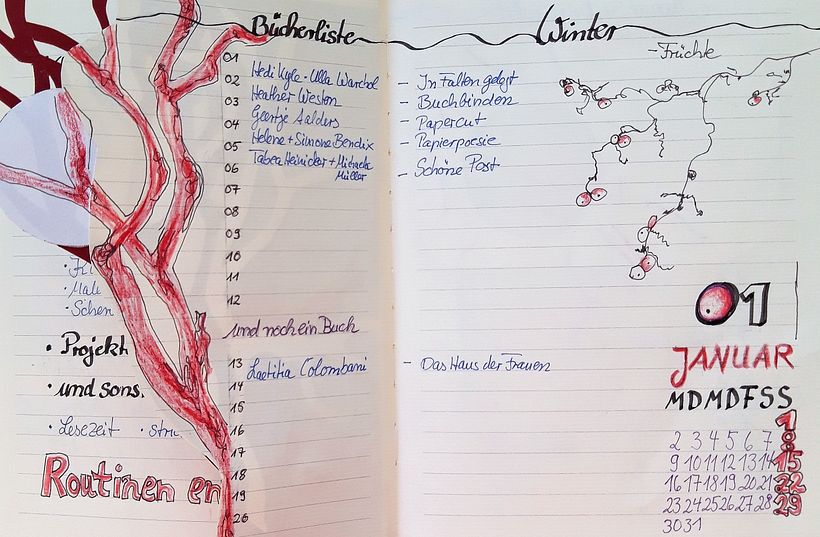 Bücherliste Winter
- Früchte
01
02 Hedi Kyle - Ulla Warchol - In Falten gelegt
03 Heather Weston - Buchbinden
04 Geertje Aalders - Papercut
05 Helene + Simone Bendix - Papierpoesie
06 Tabea Heinicker + Michaela Müller - Schöne Post
07
08
09
10
11
12
und noch ein Buch
13 Laetitia Colombani - Das Haus der Frauen
14
15
16
17
18
19
20
· Male
· Projekt
· und sons.
· Lesezeit · stri
Routinen en
01
JANUAR
M D M D F S S
1
2 3 4 5 6 7 8
9 10 11 12 13 14 15
16 17 18 19 20 21 22
23 24 25 26 27 28 29
30 31